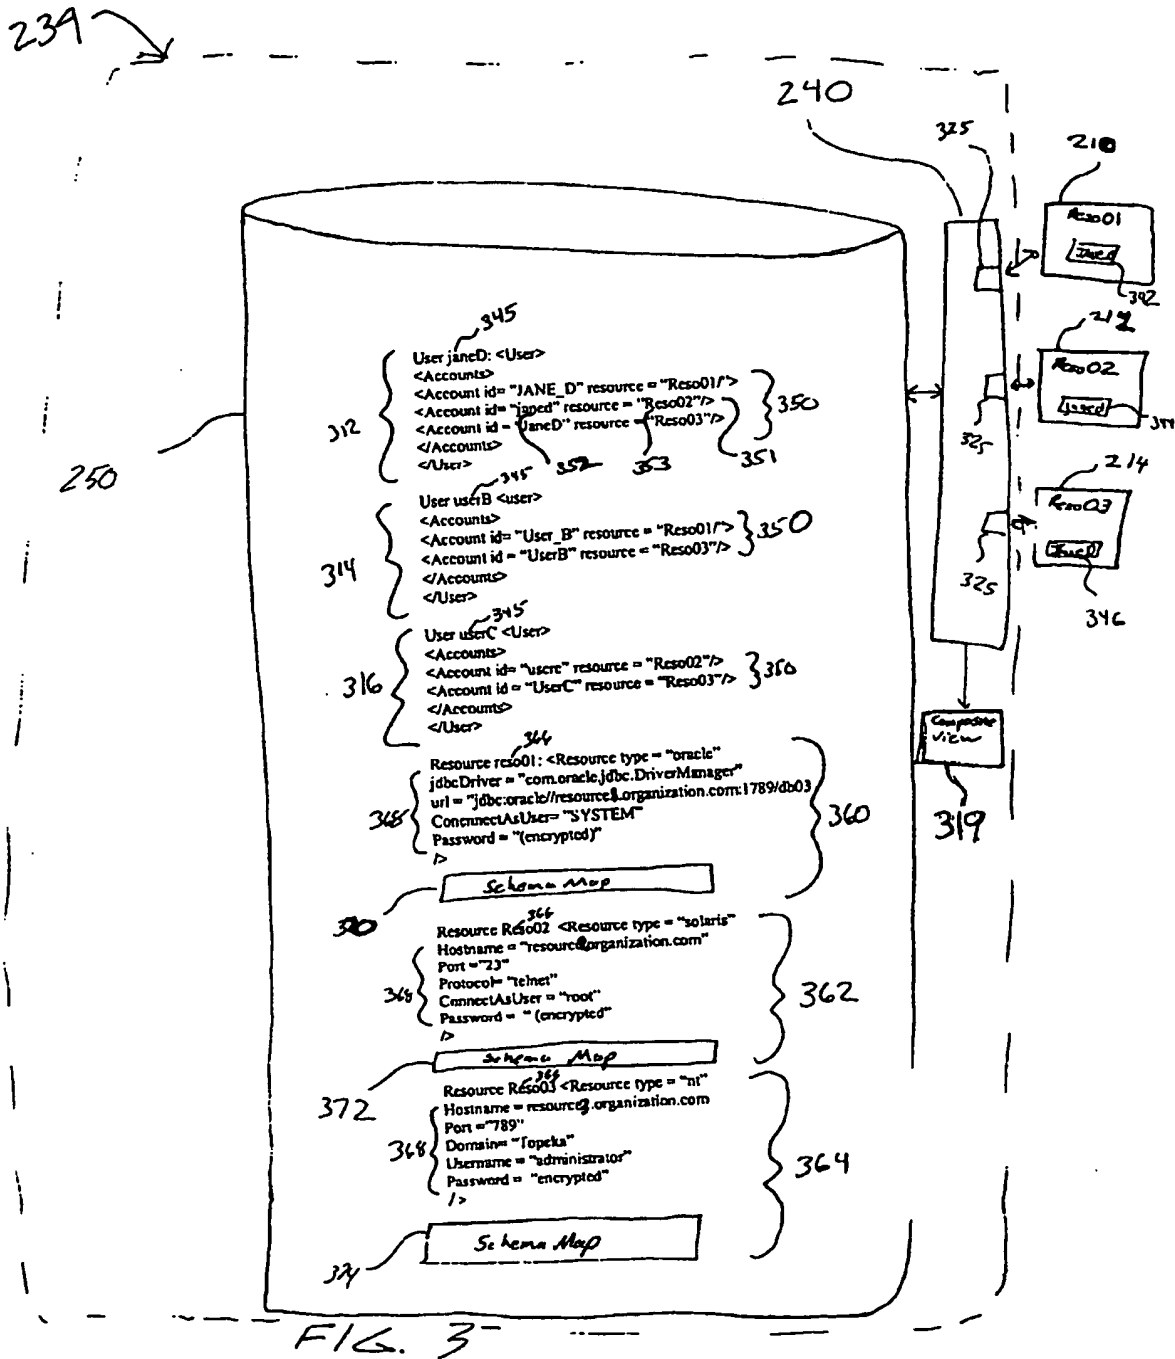 239
240
325
210
Reso01
342
212
Reso02
344
214
Reso03
346
325
325
345
User janeD: <User>
<Accounts>
<Account id= "JANE_D" resource = "Reso01/">
<Account id= "janed" resource = "Reso02"/>
<Account id = "JaneD" resource = "Reso03"/>
</Accounts>
</User>
312
350
352
353
351
250
345
User userB <user>
<Accounts>
<Account id= "User_B" resource = "Reso01/">
<Account id = "UserB" resource = "Reso03"/>
</Accounts>
</User>
314
350
345
User userC <User>
<Accounts>
<Account id= "userc" resource = "Reso02"/>
<Account id = "UserC" resource = "Reso03"/>
</Accounts>
</User>
316
350
Composite
View
319
366
Resource reso01: <Resource type = "oracle"
jdbcDriver = "com.oracle.jdbc.DriverManager"
url = "jdbc:oracle//resource1.organization.com:1789/db03
ConennectAsUser= "SYSTEM"
Password = "(encrypted)"
/>
368
360
Schema Map
370
366
Resource Reso02 <Resource type = "solaris"
Hostname = "resource2.organization.com"
Port ="23"
Protocol= "telnet"
ConnectAsUser = "root"
Password = " (encrypted"
/>
368
362
Schema Map
372
366
Resource Reso03 <Resource type = "nt"
Hostname = resource3.organization.com
Port ="789"
Domain= "Topeka"
Username = "administrator"
Password = "encrypted"
/>
368
364
Schema Map
374
FIG. 3